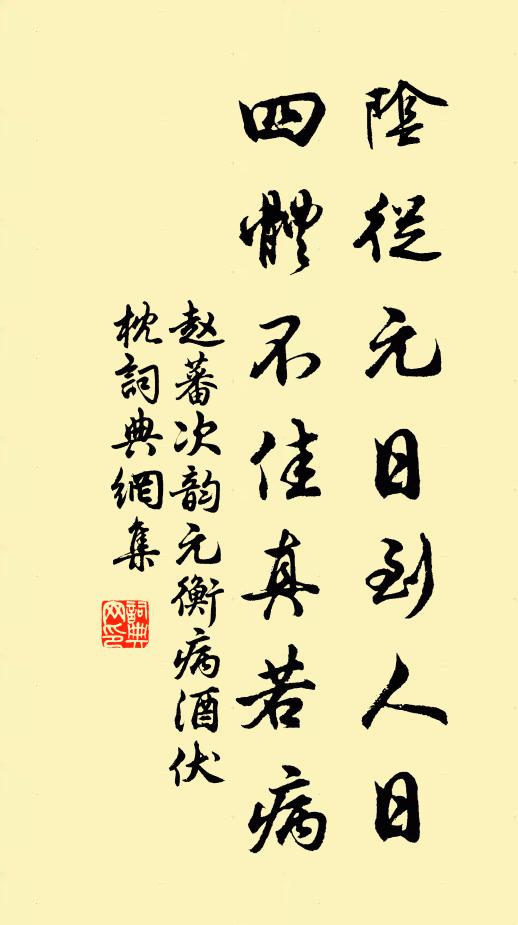 陰從元日到人日
四體不佳真若病
赵蕃次韵元衡病酒伏
枕詞典網集
詞典
网印